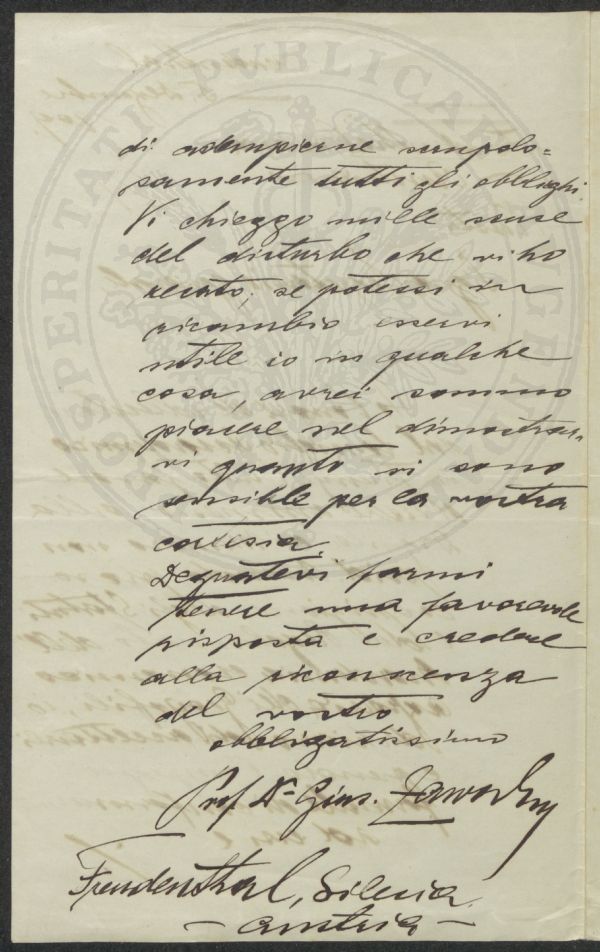 di adempierne scrupolo=
samente tutti gli obblighi.
Vi chieggo mille scuse
del disturbo che vi ho
recato; se potessi in
ricambio esservi
utile io in qualche
cosa, avrei sommo
piacere nel dimostrar-
vi quanto vi sono
sensibile per la vostra
cortesia.
Degnatevi farmi
tenere una favorevole
risposta e credere
alla riconoscenza
del vostro
obbligatissimo
Prof. Dr. Gius. Zawodny
Freudenthal, Silesia
- Austria -